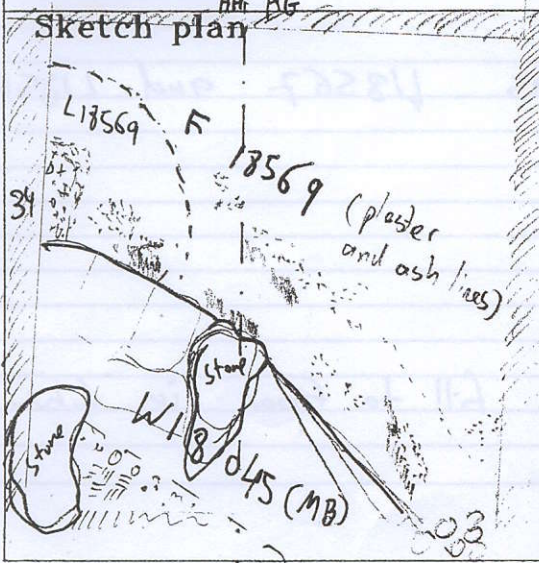 AH AG
Sketch plan
L18569
F
18569
34
(plaster
and ash lines)
Stone
Stone
W18045 (MB)